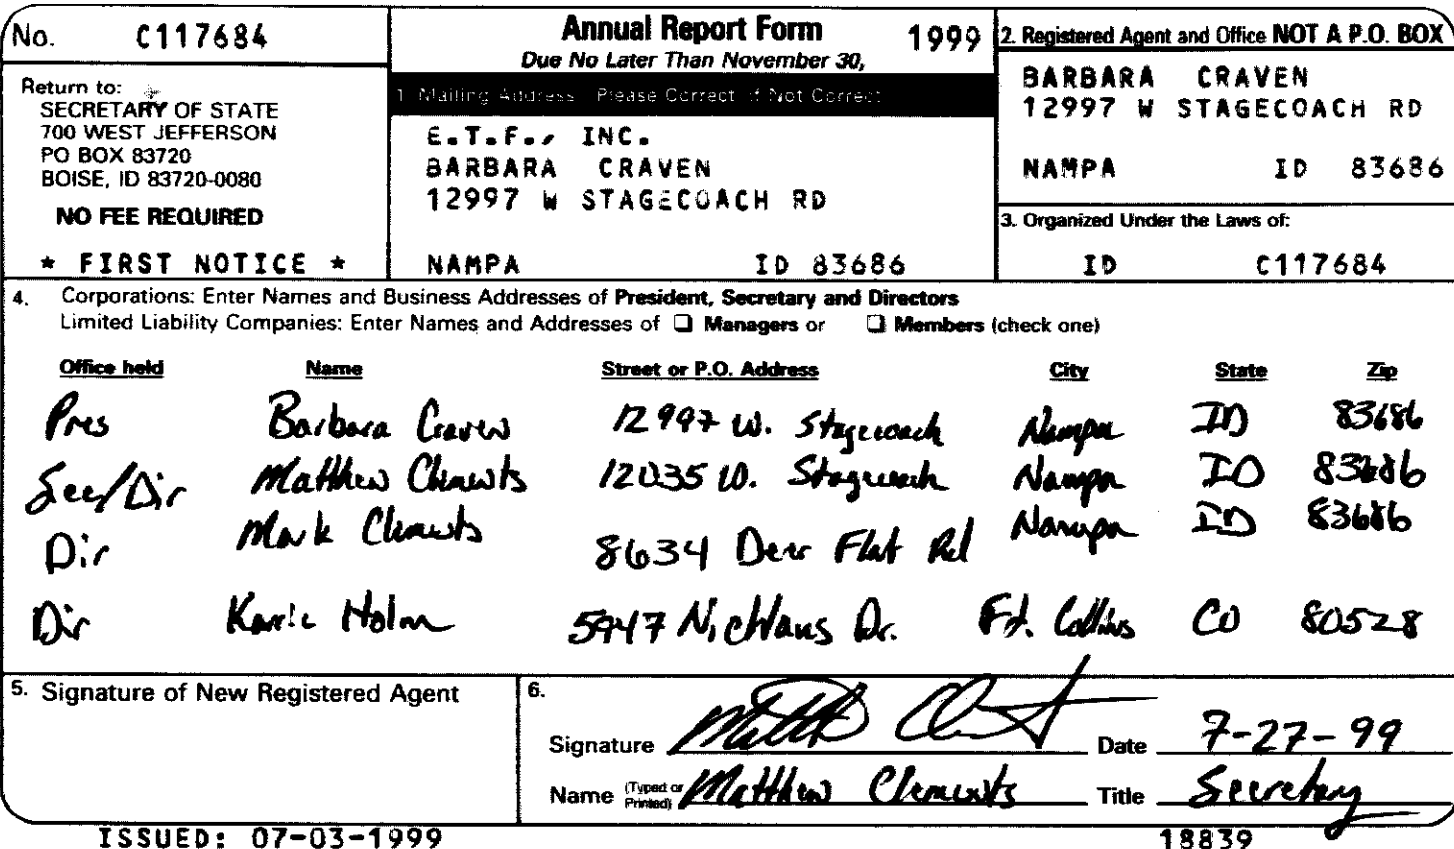 No. C117684
Annual Report Form 1999
Due No Later Than November 30,
Return to:
SECRETARY OF STATE
700 WEST JEFFERSON
PO BOX 83720
BOISE, ID 83720-0080
NO FEE REQUIRED
* FIRST NOTICE *
1. Mailing Address Please Correct If Not Correct
E.T.F., INC.
BARBARA CRAVEN
12997 W STAGECOACH RD
NAMPA ID 83686
2. Registered Agent and Office NOT A P.O. BOX
BARBARA CRAVEN
12997 W STAGECOACH RD
NAMPA ID 83686
3. Organized Under the Laws of:
ID C117684
4. Corporations: Enter Names and Business Addresses of President, Secretary and Directors
Limited Liability Companies: Enter Names and Addresses of ❑ Managers or ❑ Members (check one)
Office held Name Street or P.O. Address City State Zip
Pres Barbara Craven 12997 W. Stagecoach Nampa ID 83686
Sec/Dir Matthew Clements 12035 W. Stagecoach Nampa ID 83686
Dir Mark Clements 8634 Deer Flat Rd Nampa ID 83686
Dir Karrie Holm 5947 Nicklaus Dr. Ft. Collins CO 80528
5. Signature of New Registered Agent
6.
Signature Matth Clements Date 7-27-99
Name (Typed or Printed) Matthew Clements Title Secretary
ISSUED: 07-03-1999 18839